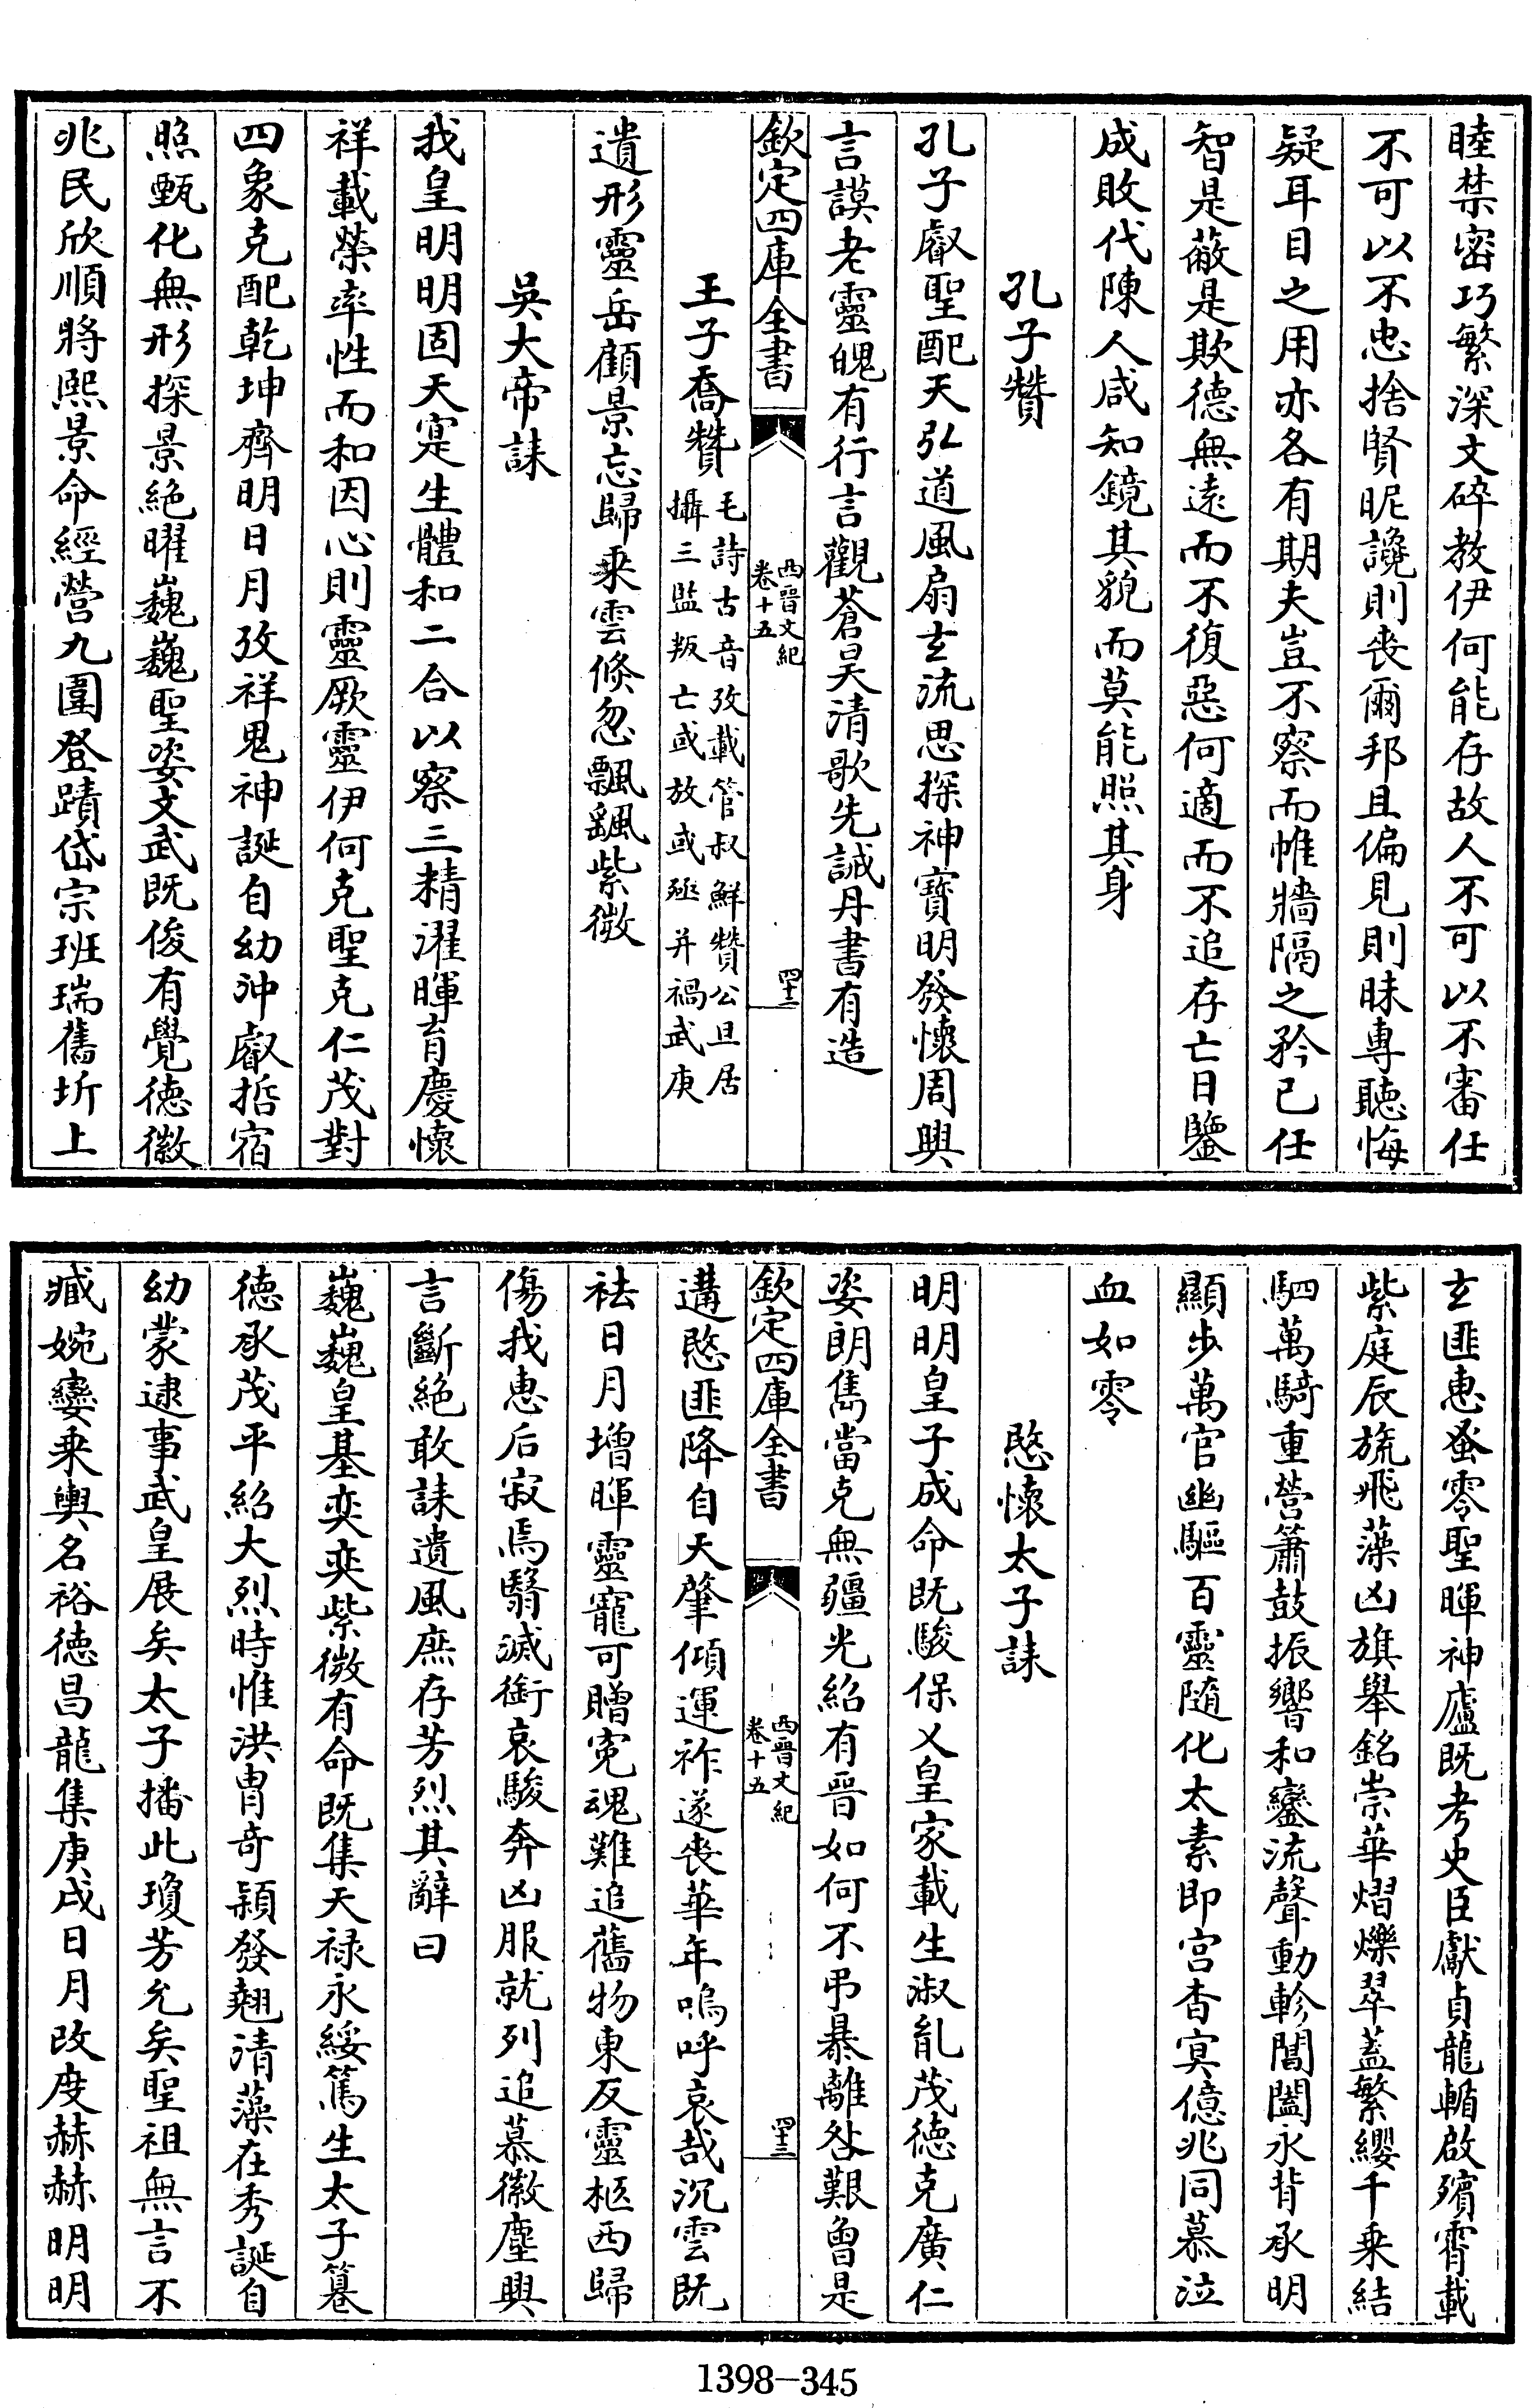 睦禁密巧繁深文碎教伊何能存故人不可以不審任
不可以不忠捨賢昵讒則喪爾邦且偏見則昧專聽悔
疑耳目之用亦各有期夫豈不察而帷牆隔之矜已任
智是蔽是欺德無遠而不復惡何適而不追存亡日鑒
成敗代陳人咸知鏡其貌而莫能照其身
孔子贊
孔子叡聖配天弘道風扇玄流思探神寶明發懷周興
言謨老靈魄有行言觀蒼昊清歌先誡丹書有造
欽定四庫全書
西晉文紀
卷十五
四十二
王子喬贊
毛詩古音攷載管叔鮮贊公旦居
攝三監叛亡或放或殛并禍武庚
遺形靈岳顧景忘歸乘雲倐忽飄颻紫微
吳大帝誄
我皇明明固天寔生體和二合以察三精濯暉育慶懷
祥載榮率性而和因心則靈厥靈伊何克聖克仁茂對
四象克配乾坤齊明日月攷祥鬼神誕自幼沖叡哲宿
照甄化無形探景絶曜巍巍聖姿文武既俊有覺德徽
兆民欣順將熙景命經營九圍登蹟岱宗班瑞舊圻上
玄匪惠蚤零聖暉神廬既考史臣獻貞龍輴啟殯霄載
紫庭辰旒飛藻凶旗舉銘崇華熠爍翠蓋繁纓千乘結
駟萬騎重營簫鼓振響和鑾流聲動軫閶闔永背承明
顯步萬官幽驅百靈隨化太素即宫杳冥億兆同慕泣
血如零
愍懷太子誄
明明皇子成命既駿保乂皇家載生淑亂茂德克廣仁
姿朗雋當克無疆光紹有晉如何不弔暴離咎艱曾是
遘愍匪降自天肇傾運祚遂喪華年嗚呼哀哉沉雲既
欽定四庫全書
西晉文紀
卷十五
四十三
祛日月增暉靈寵可贈寃魂難追舊物東反靈柩西歸
傷我惠后寂焉翳滅銜哀駿奔凶服就列追慕徽塵興
言斷絶敢誄遺風庶存芳烈其辭曰
巍巍皇基奕奕紫微有命既集天禄永綏篤生太子篹
德承茂平紹大烈時惟洪胄奇穎發翹清藻在秀誕自
幼蒙逮事武皇展矣太子播此瓊芳允矣聖祖無言不
臧婉孌乘輿名裕德昌龍集庚戌日月改度赫赫明明
1398-345